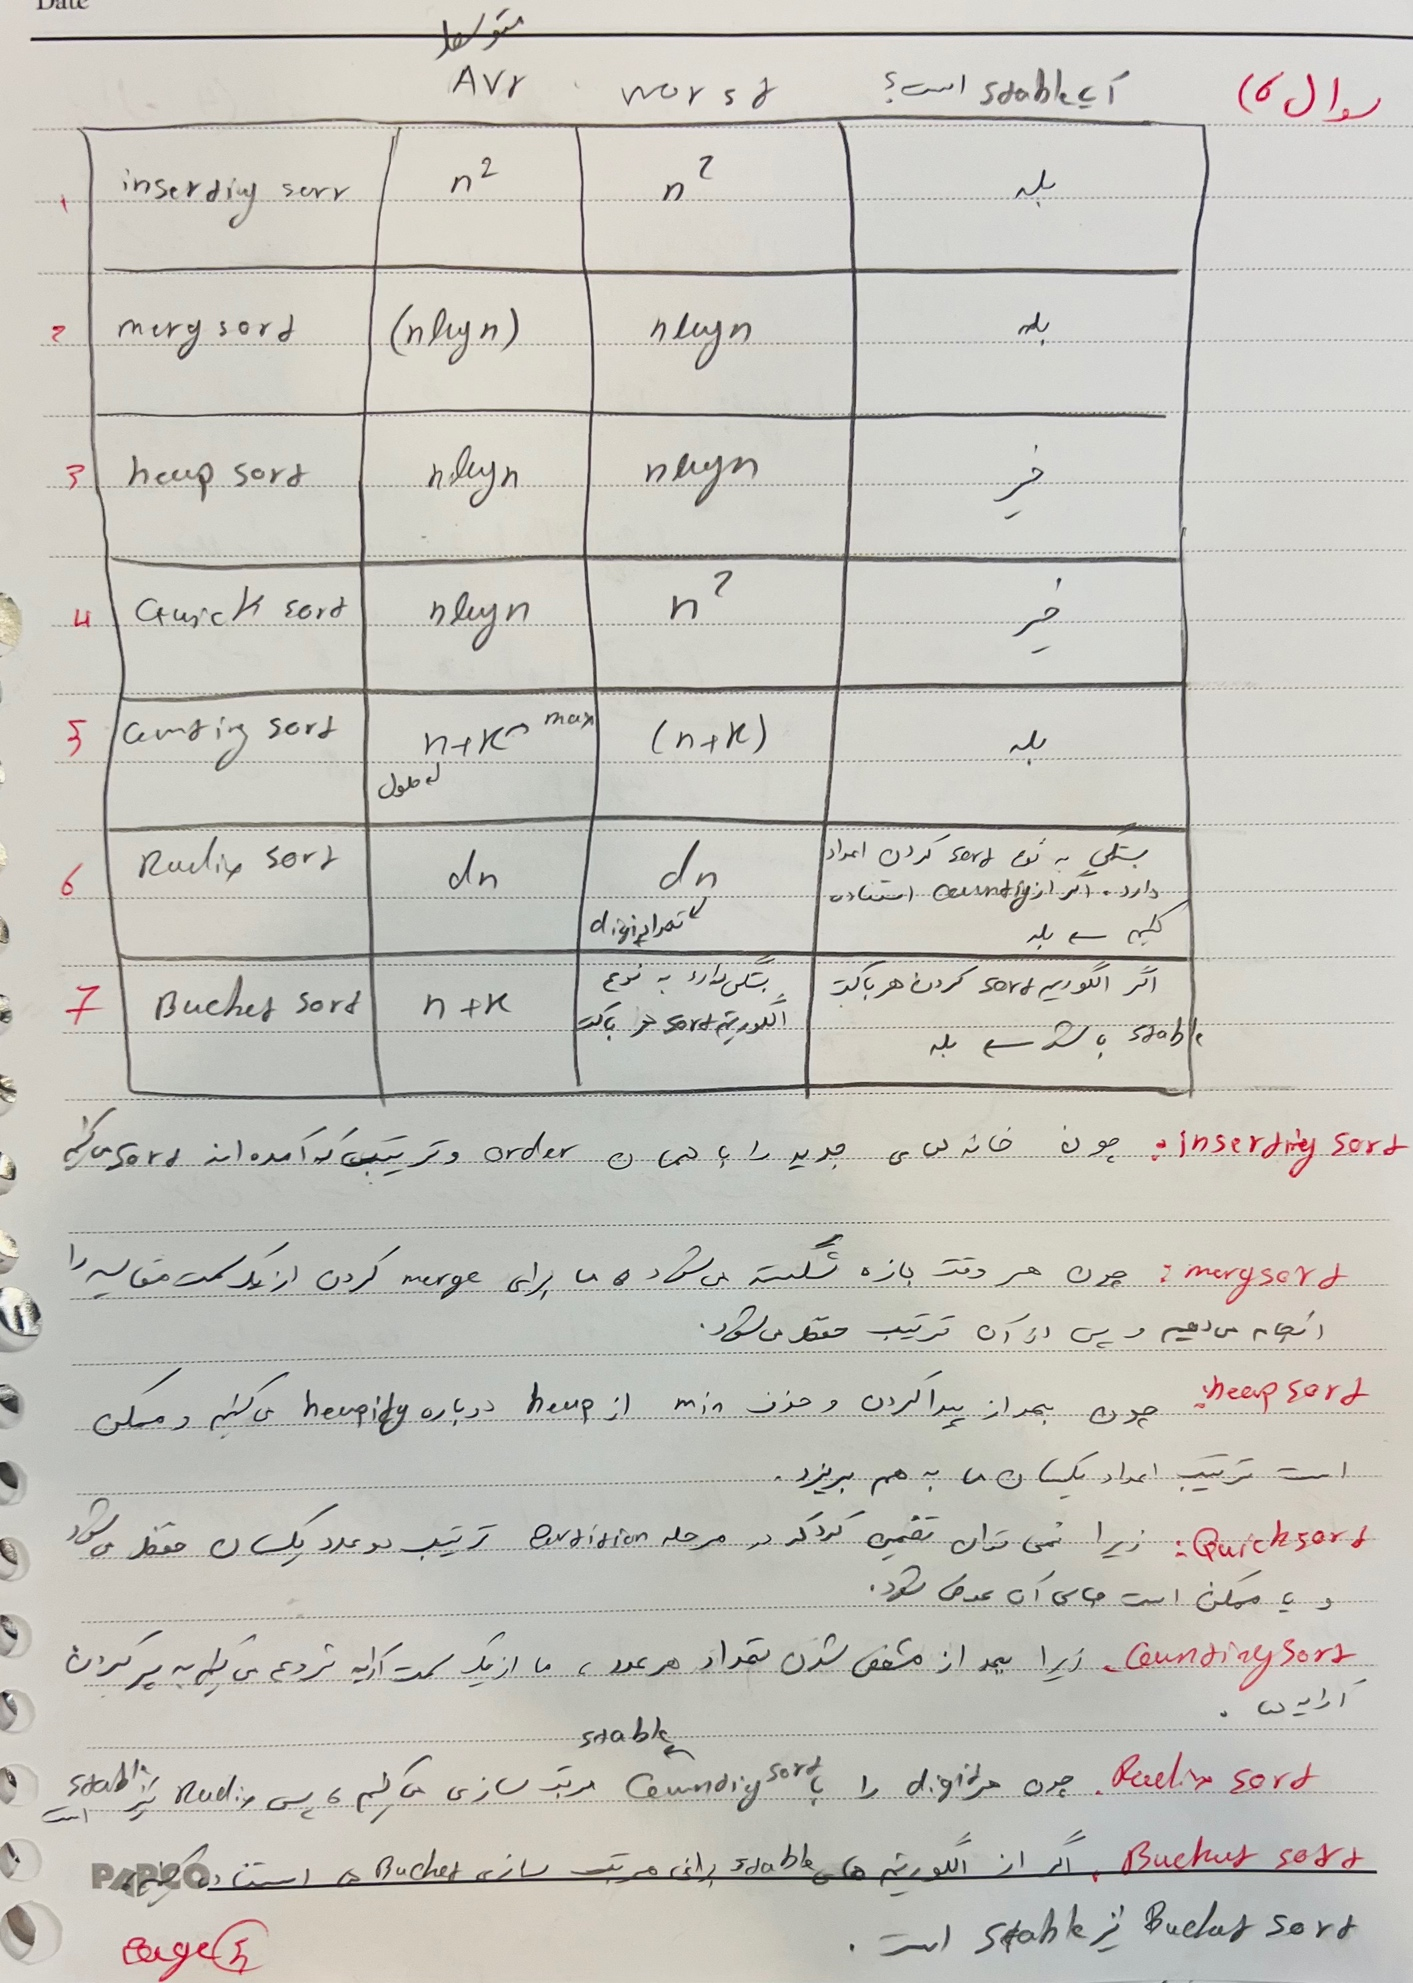 Date
متوسط
سوال 6)
Avr worst آیا stable است؟
1 inserting sort n² n² بله
2 merg sort (nlogn) nlogn بله
3 heap sort nlogn nlogn خیر
4 Quick sort nlogn n² خیر
5 counting sort n+k max (n+k) بله
طول
6 Radix sort dn dn بستگی به نوع sort کردن اعداد
تعداد digit دارد. اگر از counting استفاده
کنیم ← بله
7 Bucket sort n+k بستگی دارد به نوع اگر الگوریتم sort کردن هر باکت
الگوریتم sort هر باکت stable باشد ← بله
inserting sort: چون خانه های جدید را با همان order و ترتیبی که آمده اند sort می کنیم
merg sort: چون هر وقت بازه شکسته می شود، ما برای merge کردن از یک سمت مقایسه را
انجام می دهیم و پس از آن ترتیب حفظ می شود.
heap sort: چون بعد از پیدا کردن و حذف min از heap دوباره heapify می کنیم و ممکن
است ترتیب اعداد یکسان ما به هم بریزد.
Quick sort: زیرا نمی توان تضمین کرد که در مرحله partition ترتیب دو عدد یکسان حفظ می شود
و یا ممکن است جای آن عوض شود.
Counting sort. زیرا بعد از مشخص شدن تعداد هر عدد، ما از یک سمت آرایه شروع می کنیم به پر کردن
آرایه .
stable
Radix sort. چون هر digit را با Counting sort مرتب سازی می کنیم، پس Radix نیز stable است
Bucket sort. اگر از الگوریتم های stable برای مرتب سازی Bucket ها استفاده کنیم،
PAPCO
Bucket sort نیز stable است.
Page 5